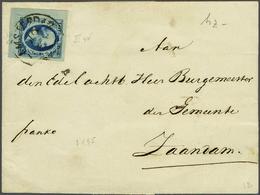 AMSTERDAM
Aan
den Edel Achtb Heer Burgemeester
der Gemeente
franko
Zaandam.